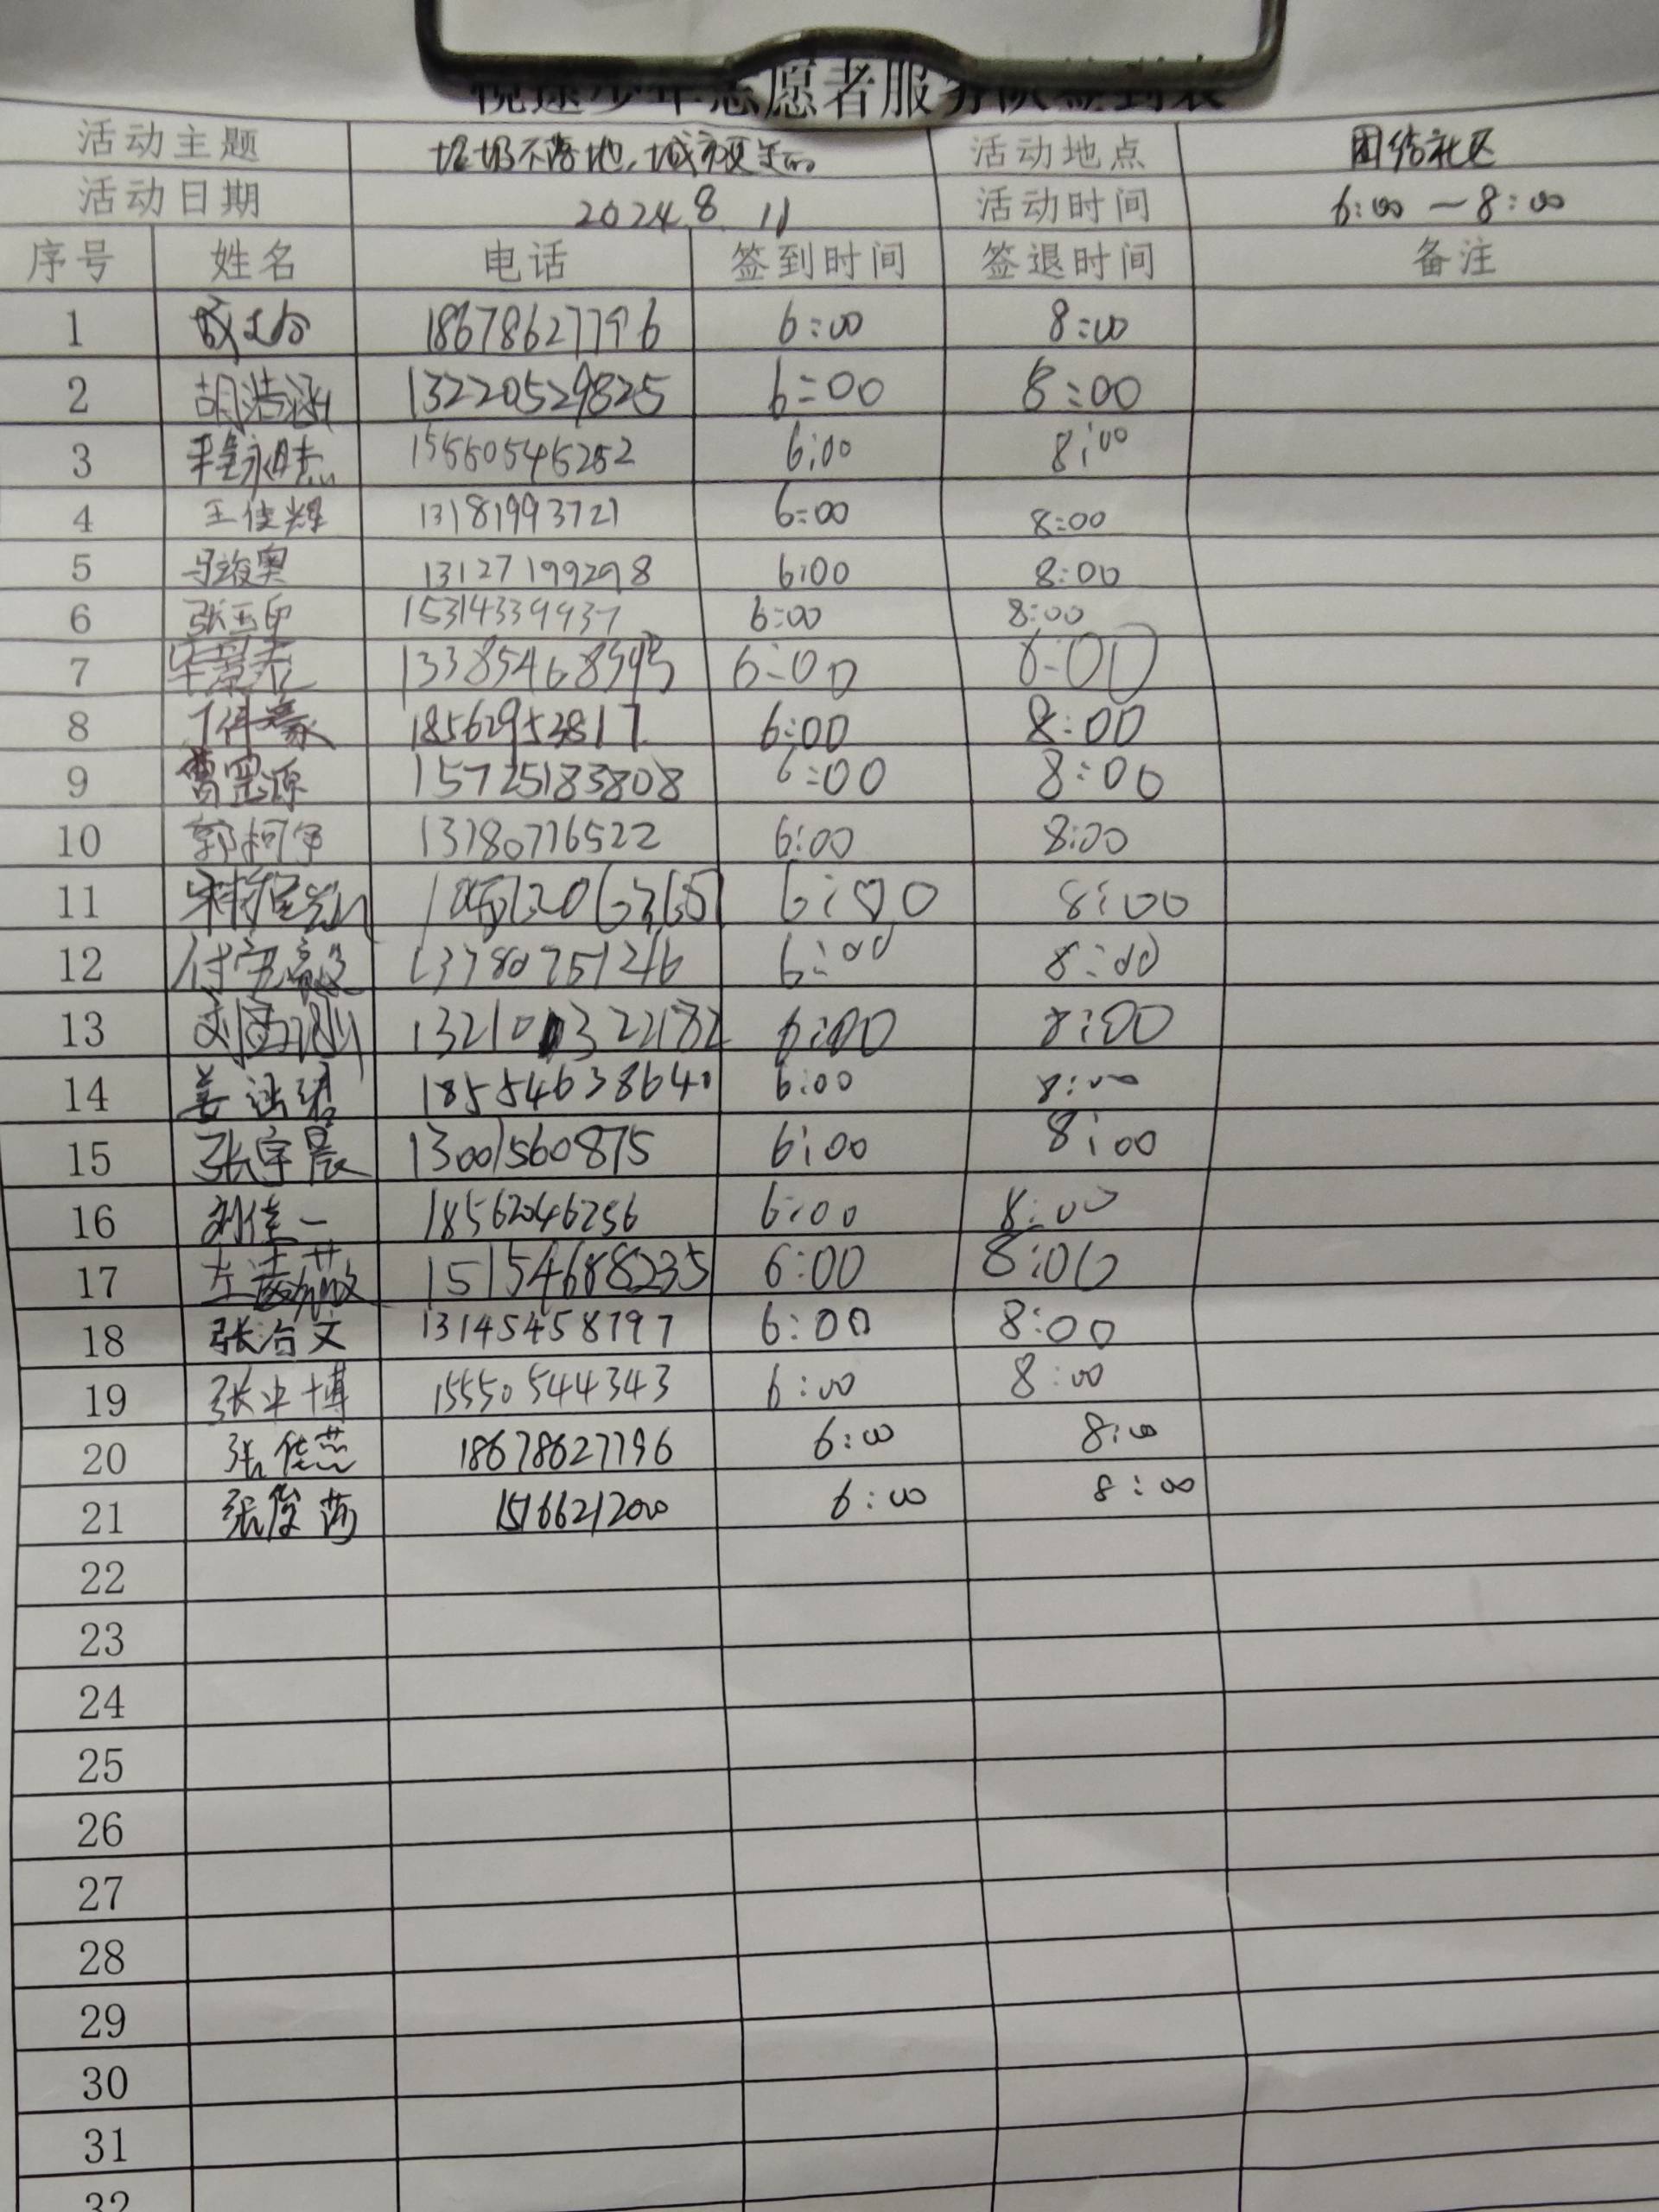 少年志愿者服务队签到表
活动主题 垃圾不落地,城市更美丽 活动地点 团结社区
活动日期 2024.8.11 活动时间 6:00-8:00
序号 姓名 电话 签到时间 签退时间 备注
1 18678627796 6:00 8:00
2 胡浩涵 13220529825 6:00 8:00
3 程永 15550545252 6:00 8:00
4 王佳辉 13181993721 6:00 8:00
5 马竣奥 13127199298 6:00 8:00
6 张玉印 15314339937 6:00 8:00
7 6:00 8:00
8 丁梓豪 18562953817 6:00 8:00
9 曹罡源 15725183808 6:00 8:00
10 郭柯宇 13780776522 6:00 8:00
11 6:00 8:00
12 付 13780751246 6:00 8:00
13 刘 6:00 8:00
14 姜 18554638640 6:00 8:00
15 张宇晨 13001560875 6:00 8:00
16 刘佳一 18562046256 6:00 8:00
17 15154688235 6:00 8:00
18 张治文 13145458797 6:00 8:00
19 张中博 15550544343 6:00 8:00
20 张佳燕 18678627796 6:00 8:00
21 张俊 15166212000 6:00 8:00
22
23
24
25
26
27
28
29
30
31
32